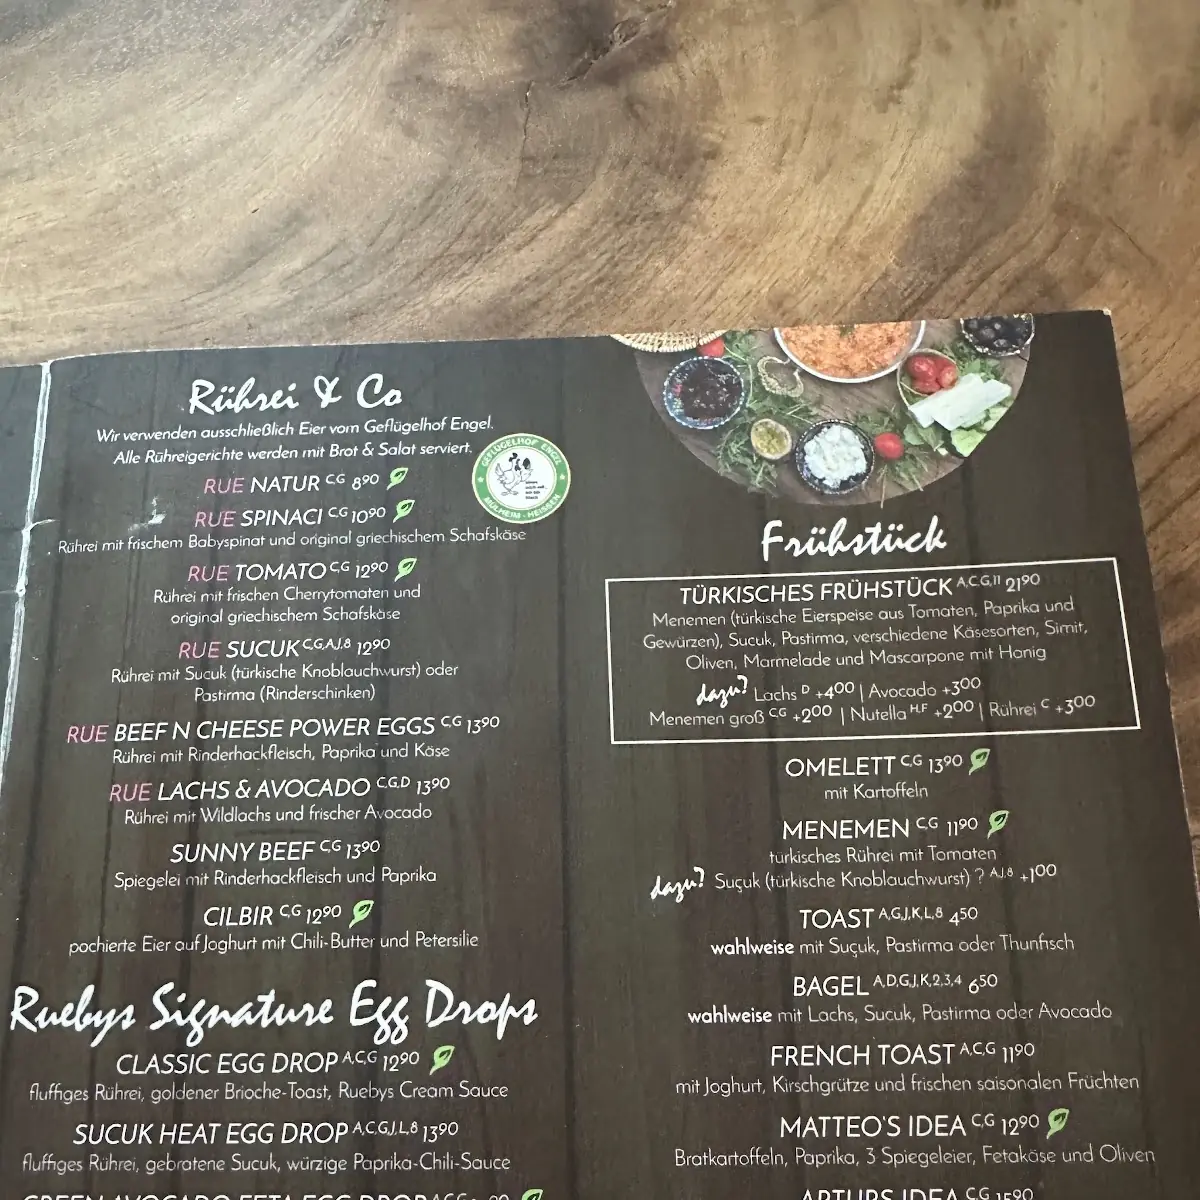 Rührei & Co
Wir verwenden ausschließlich Eier vom Geflügelhof Engel.
Alle Rühreigerichte werden mit Brot & Salat serviert.
GEFLÜGELHOF ENGEL
MÜLHEIM - HEISSEN
RUE NATUR C,G 8,90
RUE SPINACI C,G 10,90
Rührei mit frischem Babyspinat und original griechischem Schafskäse
RUE TOMATO C,G 12,90
Rührei mit frischen Cherrytomaten und
original griechischem Schafskäse
RUE SUCUK C,G,A,J,8 12,90
Rührei mit Sucuk (türkische Knoblauchwurst) oder
Pastirma (Rinderschinken)
RUE BEEF N CHEESE POWER EGGS C,G 13,90
Rührei mit Rinderhackfleisch, Paprika und Käse
RUE LACHS & AVOCADO C,G,D 13,90
Rührei mit Wildlachs und frischer Avocado
SUNNY BEEF C,G 13,90
Spiegelei mit Rinderhackfleisch und Paprika
CILBIR C,G 12,90
pochierte Eier auf Joghurt mit Chili-Butter und Petersilie
Ruebys Signature Egg Drops
CLASSIC EGG DROP A,C,G 12,90
fluffiges Rührei, goldener Brioche-Toast, Ruebys Cream Sauce
SUCUK HEAT EGG DROP A,C,G,J,L,8 13,90
fluffiges Rührei, gebratene Sucuk, würzige Paprika-Chili-Sauce
GREEN AVOCADO FETA EGG DROP
Frühstück
TÜRKISCHES FRÜHSTÜCK A,C,G,11 21,90
Menemen (türkische Eierspeise aus Tomaten, Paprika und
Gewürzen), Sucuk, Pastirma, verschiedene Käsesorten, Simit,
Oliven, Marmelade und Mascarpone mit Honig
dazu? Lachs D +4,00 | Avocado +3,00
Menemen groß C,G +2,00 | Nutella H,F +2,00 | Rührei C +3,00
OMELETT C,G 13,90
mit Kartoffeln
MENEMEN C,G 11,90
türkisches Rührei mit Tomaten
dazu? Suçuk (türkische Knoblauchwurst) ? A,J,8 +1,00
TOAST A,G,J,K,L,8 4,50
wahlweise mit Suçuk, Pastirma oder Thunfisch
BAGEL A,D,G,J,K,2,3,4 6,50
wahlweise mit Lachs, Sucuk, Pastirma oder Avocado
FRENCH TOAST A,C,G 11,90
mit Joghurt, Kirschgrütze und frischen saisonalen Früchten
MATTEO'S IDEA C,G 12,90
Bratkartoffeln, Paprika, 3 Spiegeleier, Fetakäse und Oliven
ARTURS IDEA C,G 15,90